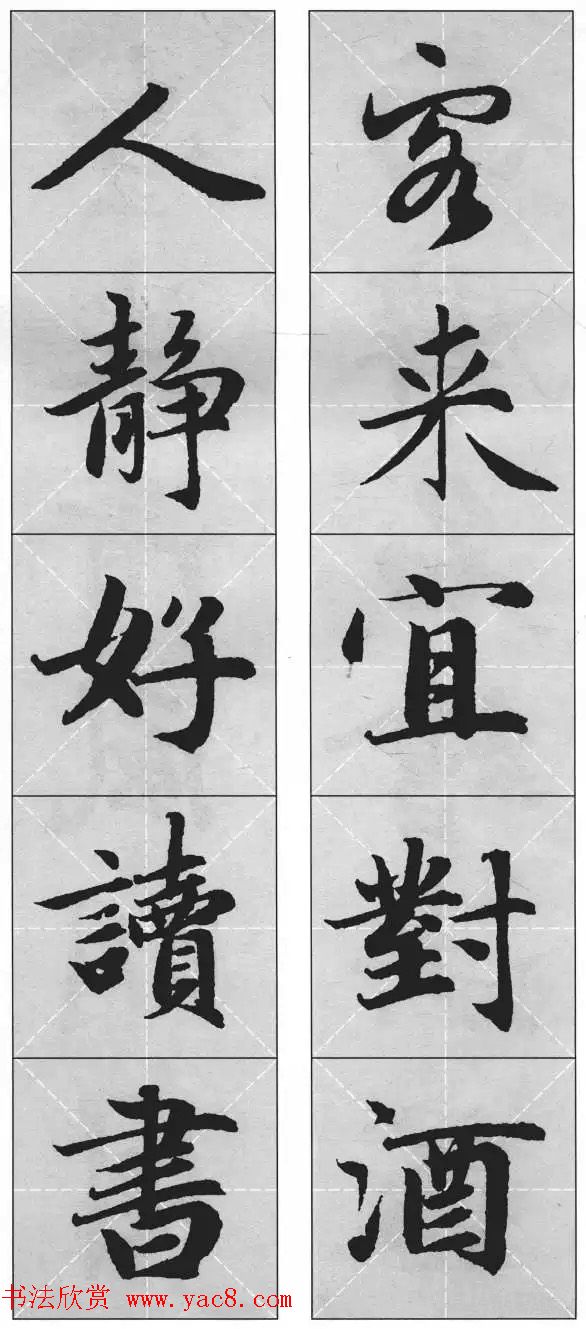 客来宜對酒
人靜好讀書
书法欣赏 www.yac8.com